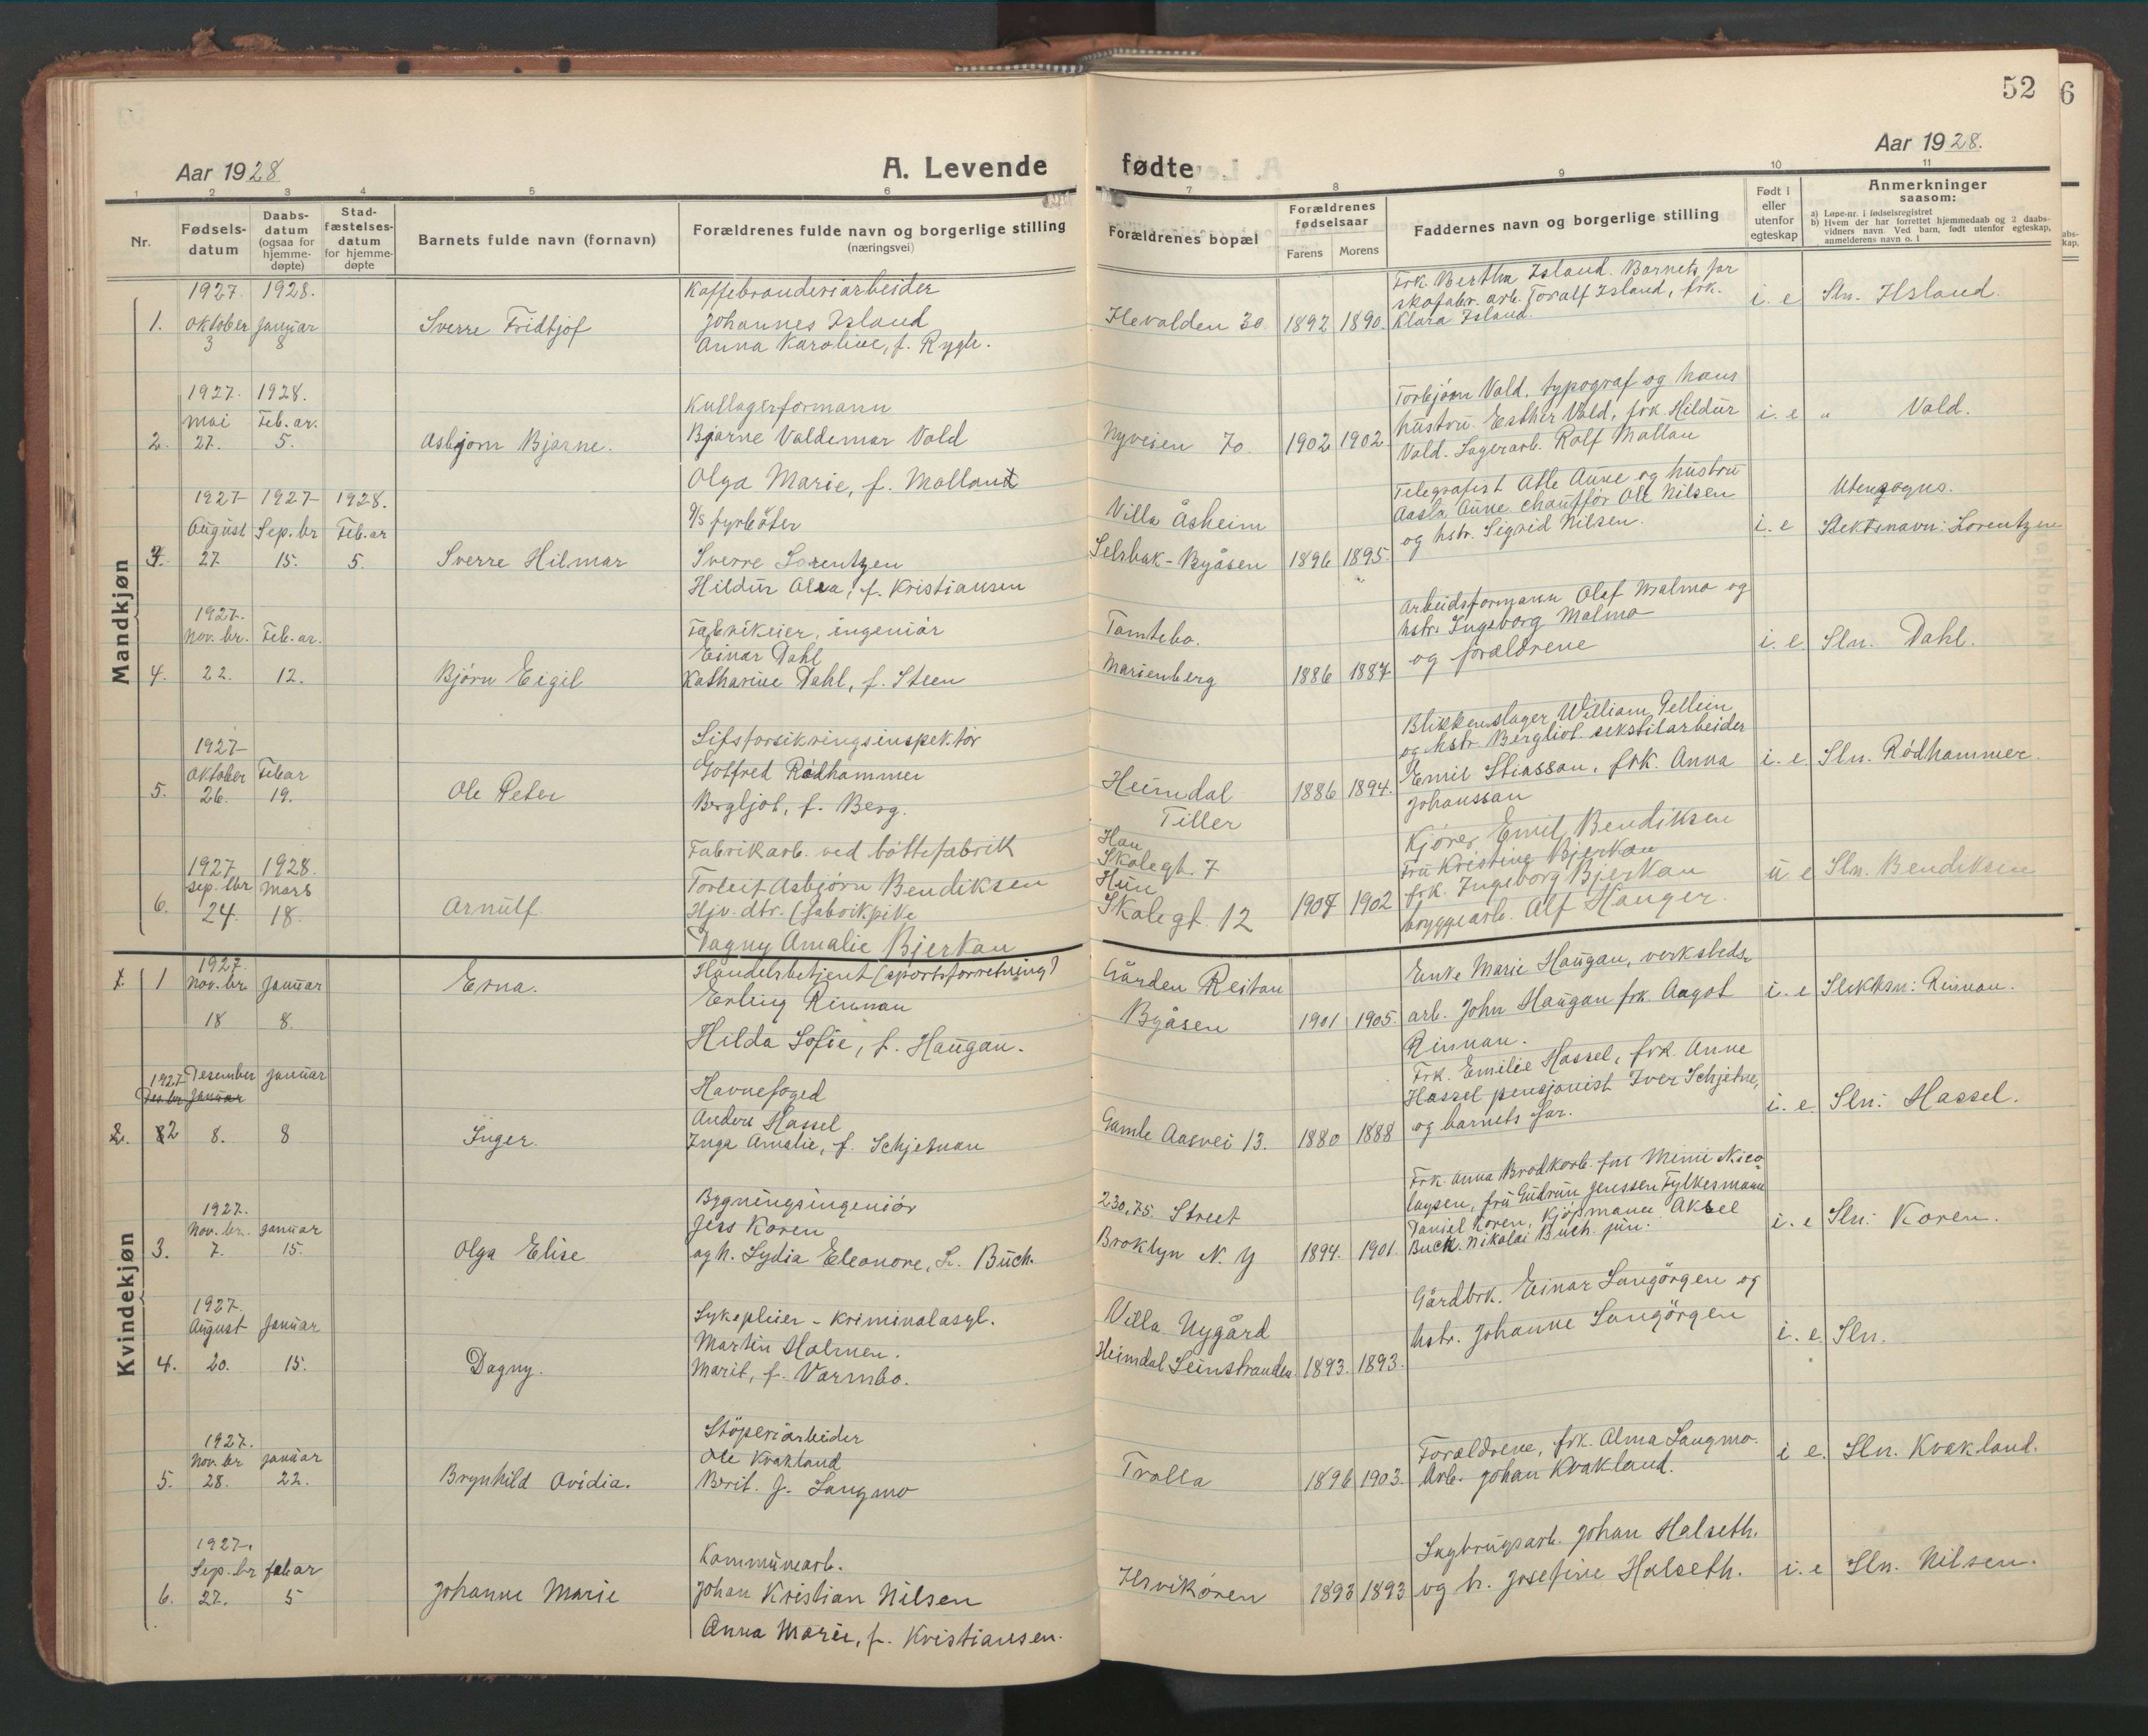 52
6
Aar 1928
A. Levende
fødte
Aar 1928.
1 2 3 4 5 6 7 8 9 10 11
Nr.
Fødsels-
datum
Daabs-
datum
(ogsaa for
hjemme-
døpte)
Stad-
fæstelses-
datum
for hjemme-
døpte
Barnets fulde navn (fornavn)
Forældrenes fulde navn og borgerlige stilling
(næringsvei)
Forældrenes bopæl
Forældrenes
fødselsaar
Farens Morens
Faddernes navn og borgerlige stilling
Født i
eller
utenfor
egteskap
Anmerkninger
saasom:
a) Løpe-nr. i fødselsregistret
b) Hvem der har forrettet hjemmedaab og 2 daabs-
vidners navn. Ved barn, født utenfor egteskap,
anmelderens navn o. l
Mandkjøn
1927. 1928.
1. Oktober Januar
3 8
Sverre Fridtjof
Kaffebranderiarbeider
Johannes Island
Anna Karoline, f. Rygh.
Ilevolden 30
1892 1890.
Frk. Bertha Island. Barnets far
skofabr. arb. Toralf Island, frk.
Klara Island.
i. e
Sln. Ilsland.
1927. 1928.
mai Feb.ar.
2. 27. 5.
Asbjørn Bjarne.
Kullagerformann
Bjarne Valdemar Vold
Olga Marie, f. Molland
Nyveien 70.
1902 1902
Torbjørn Vold, typograf og hans
hustru Esther Vold, frk. Hildur
Vold. Lagerarb. Rolf Mollan
i. e
" Vold.
1927 1927 1928.
August Sep.br Feb.ar
3. 27. 15. 5.
Sverre Hilmar
D/s fyrbøter
Sverre Lorentzen
Hildur Alva, f. Kristiansen
Villa Åsheim
Selsbak - Byåsen
1896 1895.
Telegrafist Atle Aune og hustru
Aasta Aune chauffør Ole Nilsen
og hstr. Sigrid Nilsen.
i. e
Utensogns.
Slektsnavn: Lorentzen
1927.
Nov. br. Feb.ar.
4. 22. 12.
Bjørn Eigil
Fabrikeier, ingeniør
Einar Dahl
Katharine Dahl, f. Steen
Tomtebo.
Marienberg
1886 1887
Arbeidsformann Olaf Malmo og
hstr. Ingeborg Malmo
og forældrene
i. e.
Sln. Dahl.
1927
Oktober Feb.ar
5. 26. 19.
Ole Peter
Lifsforsikringsinspektør
Gotfred Rødhammer
Bergljot, f. Berg.
Heimdal
Tiller
1886 1894.
Blikkenslager William Gellein
og hstr. Bergliot. tekstilarbeider
Emil Stiassan, frk. Anna
Johanssan
i. e.
Sln. Rødhammer.
1927 1928.
Sep. tbr Mars
6. 24. 18.
Arnulf
Fabrikarb. ved bøttefabrikk
Torleif Asbjørn Bendiksen
Hjv. dtr. (fabrikpike
Dagny Amalie Bjerkan
Han
Skolegt. 7
Hun
Skolegt. 12
1904 1902
Kjører Emil Bendiksen
Fru Kristine Bjerkan
frk. Ingeborg Bjerkan
bryggearb. Alf Hanger.
u. e
Sln. Bendiksen
Kvindekjøn
1927.
1 Nov. br Januar
18 8.
Erna.
Handelsbetjent (sportsforretning)
Erling Rinnan
Hilda Sofie, f. Haugan.
Gården Reitan
Byåsen
1901 1905.
Enke Marie Haugan, verksteds-
arb. John Haugan frk. Aagot
Rinnan.
i. e
Slektsn: Rinnan.
1927 Desember Januar
Des.br Januar
2. 2 8. 8
Inger.
Havnefoged
Anders Hassel
Inga Amalie, f. Schjetnan
Gamle Aasvei 13.
1880 1888
Frk. Emilie Hassel, frk. Anne
Hassel pensjonist Iver Schjetne,
og barnets far.
i. e
Sln: Hassel.
1927.
Nov. br. Januar
3. 7. 15.
Olga Elise
Bygningsingeniør
Jess Koren
og h. Lydia Eleonore, f. Buch.
230, 75. Street
Broklyn N. Y
1894. 1901.
Frk. Anna Brodkorb. frk Mimi Nico-
laysen, fru Gudrun Jenssen Fylkesmann
Daniel Koren, Kjøpmann Aksel
Buck. Nikolai Buch. jun.
i. e
Sln: Koren.
1927.
August Januar
4. 20. 15.
Dagny.
Sykepleier - Kriminalasyl.
Martin Holmen.
Marit, f. Varmbo.
Villa Nygård
Heimdal Leinstranden
1893. 1893.
Gårdbrk. Einar Langørgen og
hstr. Johanne Langørgen
i. e.
Sln.
1927.
Nov. br Januar
5. 28. 22.
Brynhild Ovidia.
Støperiarbeider
Ole Kvakland
Brit. f. Langmo
Trolla
1896 1903.
Forældrene, frk. Alma Langmo.
Arb. Johan Kvakland.
i e.
Sln. Kvakland.
1927.
Sep. br Febar
6. 27. 5
Johanne Marie
Kommunearb.
Johan Kristian Nilsen
Anna Marie, f. Kristiansen.
Ilsvikøren
1893 1893
Sagbrugsarb. Johan Halseth.
og h. Josefine Halseth.
i. e
Sln. Nilsen.